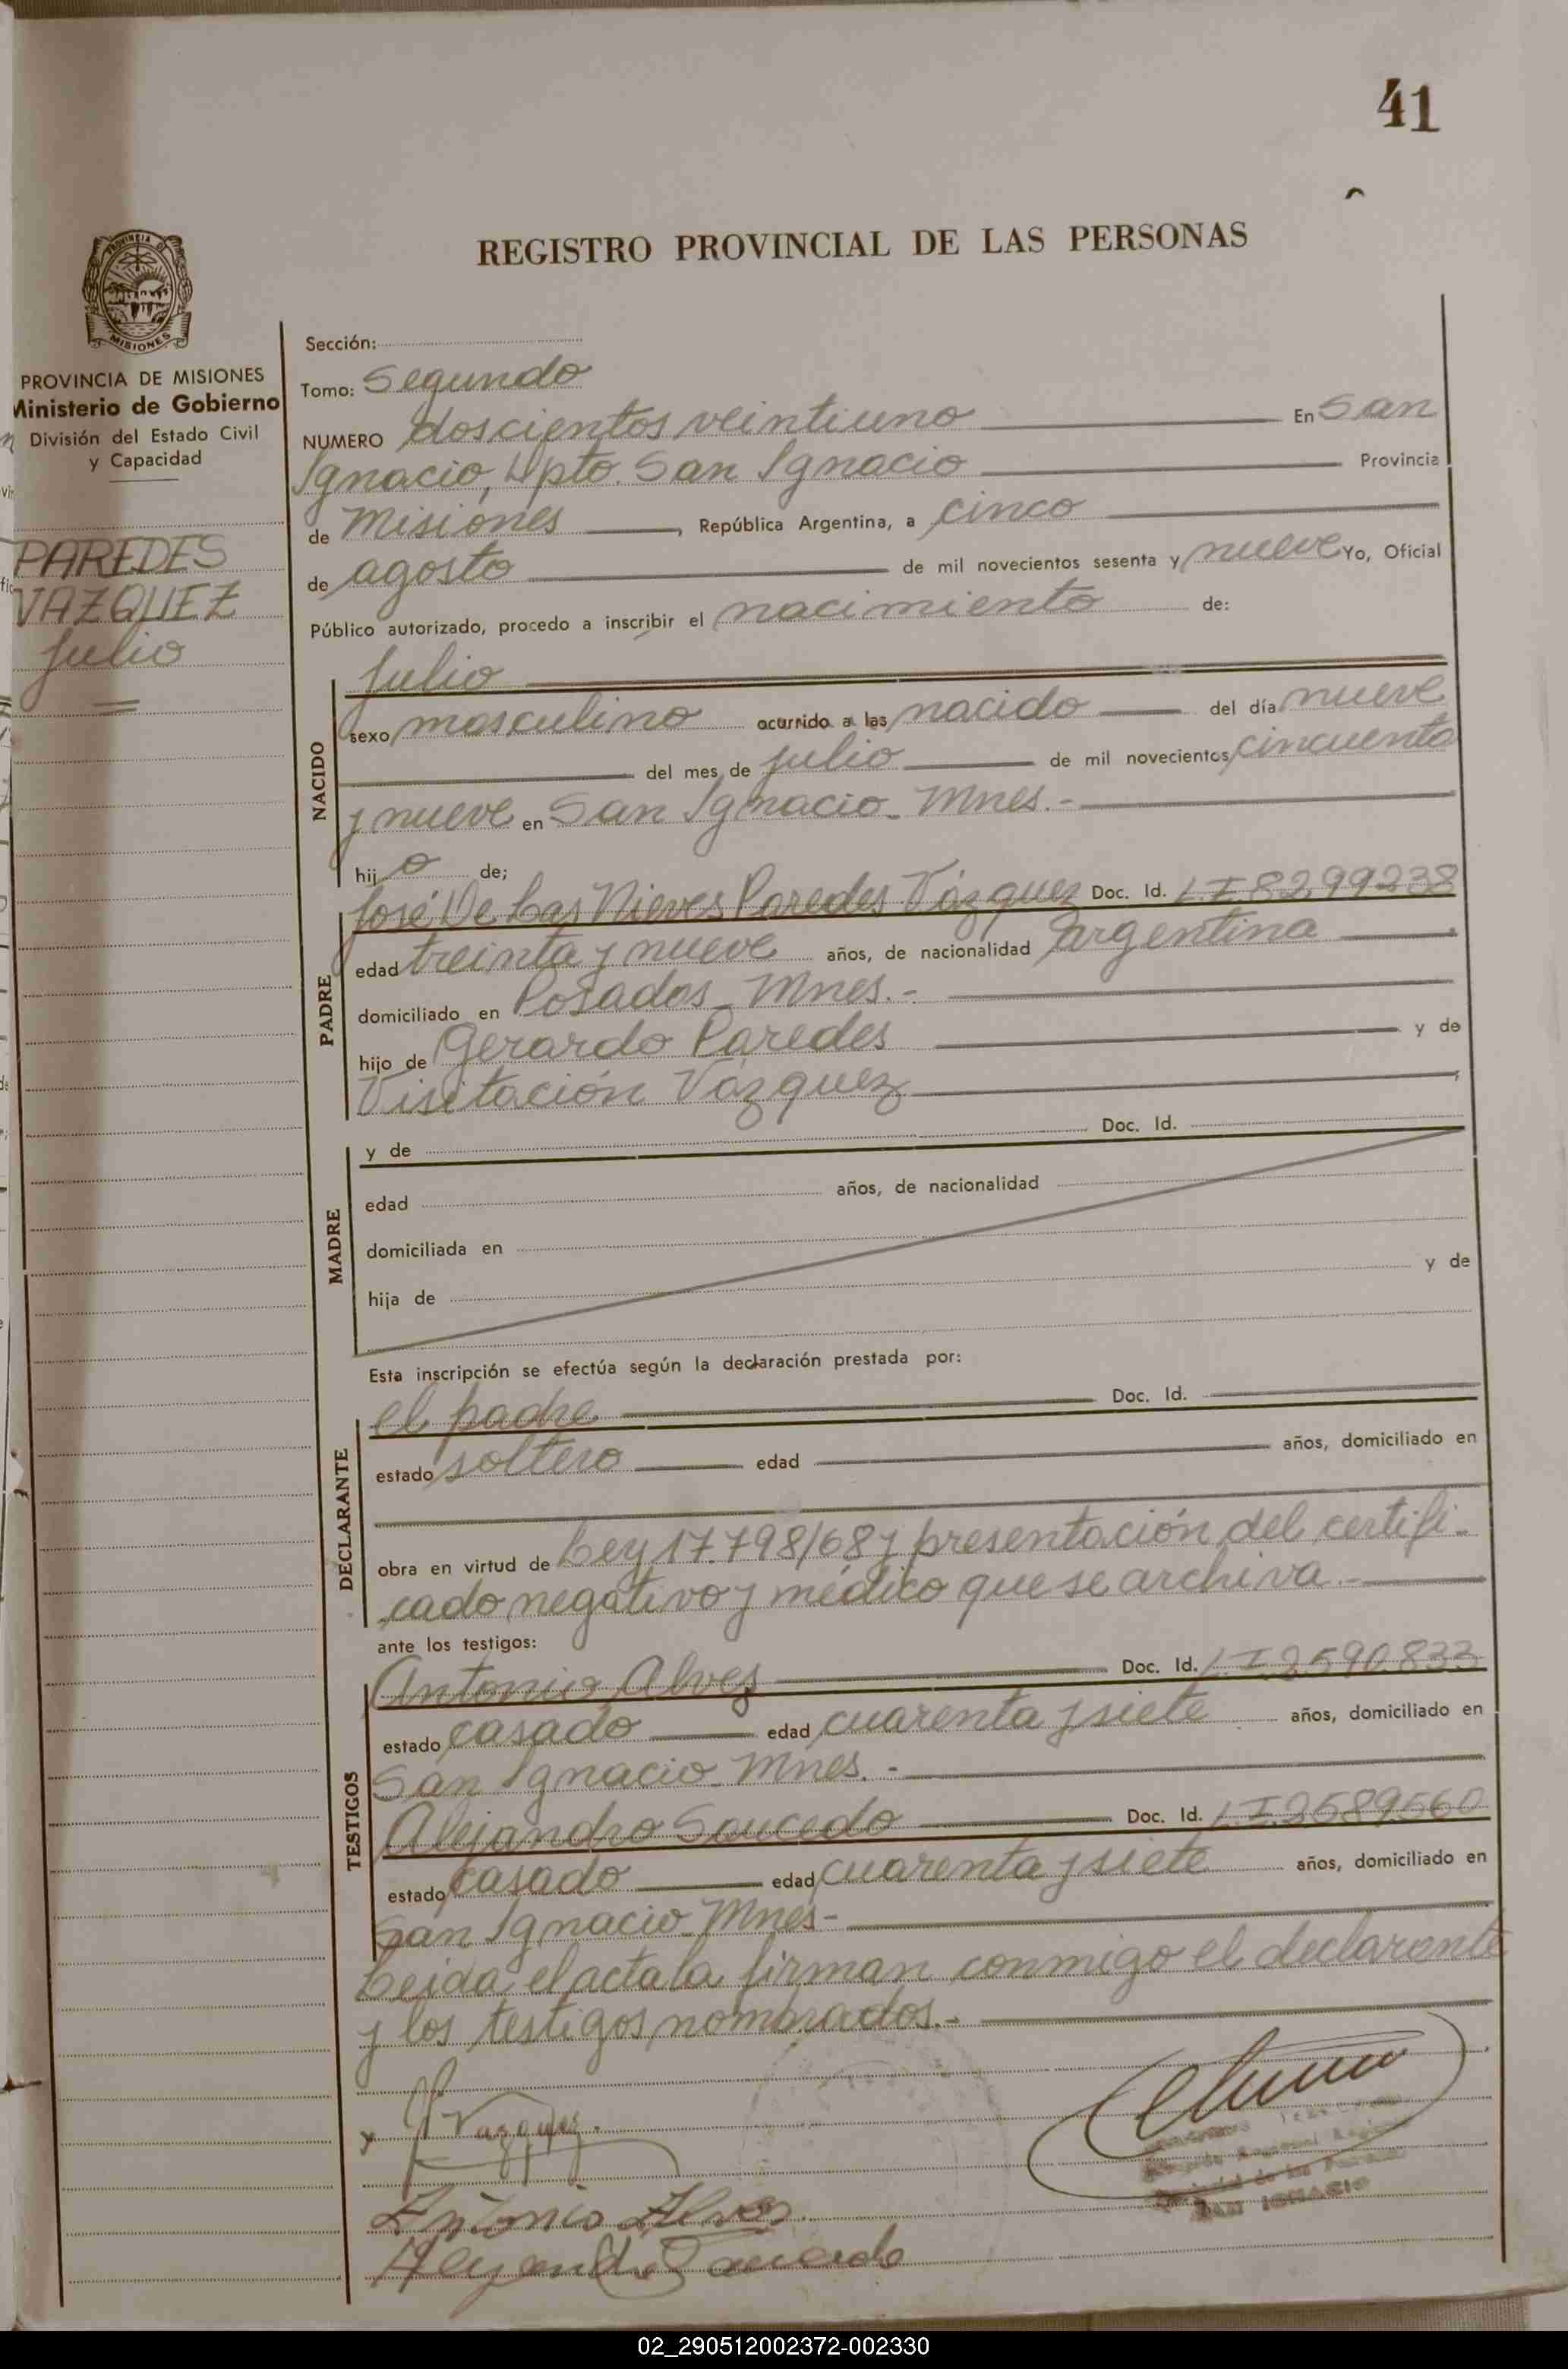 41
REGISTRO PROVINCIAL DE LAS PERSONAS
PROVINCIA DE MISIONES
PROVINCIA DE MISIONES
Ministerio de Gobierno
División del Estado Civil
y Capacidad
PAREDES
VAZQUEZ
Julio
Sección:
Tomo: Segundo
NUMERO doscientos veintiuno En San
Ignacio, Dpto. San Ignacio Provincia
de Misiones, República Argentina, a cinco
de agosto de mil novecientos sesenta y nueve Yo, Oficial
Público autorizado, procedo a inscribir el nacimiento de:
NACIDO
Julio
sexo masculino ocurrido a las nacido del día nueve
del mes de julio de mil novecientos cincuenta
y nueve en San Ignacio - Mnes.-
hijo de;
PADRE
José De Las Nieves Paredes Vázquez Doc. Id. L.I. 8299238
edad treinta y nueve años, de nacionalidad Argentina
domiciliado en Posadas - Mnes.-
hijo de Gerardo Paredes y de
Visitación Vázquez
MADRE
y de Doc. Id.
edad años, de nacionalidad
domiciliada en
hija de y de
Esta inscripción se efectúa según la declaración prestada por:
DECLARANTE
el padre Doc. Id.
estado soltero edad años, domiciliado en
obra en virtud de Ley 17.798/68 y presentación del certifi-
cado negativo y médico que se archiva.-
ante los testigos:
TESTIGOS
Antonio Alvez Doc. Id. L.I. 2590.833
estado casado edad cuarenta y siete años, domiciliado en
San Ignacio - Mnes.-
Alejandro Saucedo Doc. Id. L.I. 2589560
estado casado edad cuarenta y siete años, domiciliado en
San Ignacio - Mnes-
Leida el acta la firman conmigo el declarante
y los testigos nombrados.-
x Vazquez.
Antonio Alves
Alejandro Saucedo
SAN IGNACIO
02_290512002372-002330